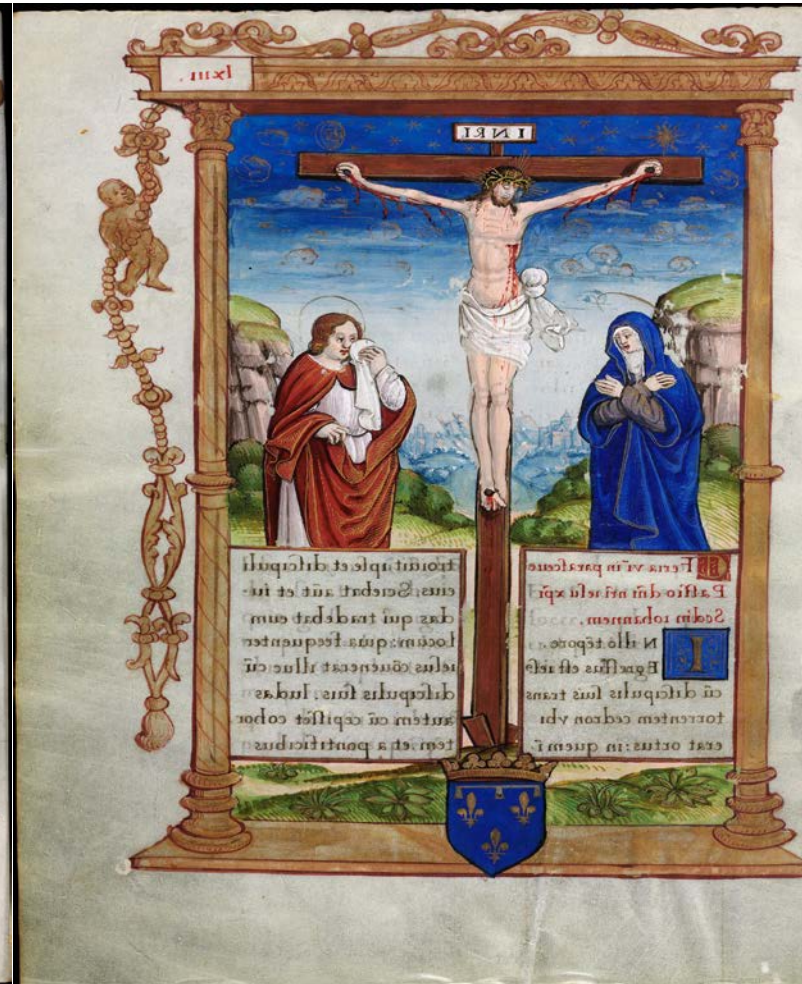 lxiii.
INRI
Feria vi in paraſceue
Paſſio dñi nri ieſu xpi
Scdm iohannem.
IN illo tẽpore.
Egreſſus eſt ieſꝰ
cũ diſcipulis ſuis trans
torrentem cedron vbi
erat ortus: in quem ĩ
troiuit ipſe et diſcipuli
eius. Sciebat aũt et iu-
das qui tradebat eum
locum: quia frequenter
ieſus cõuenerat illuc cũ
diſcipulis ſuis. Iudas
autem cũ cepiſſet cohor
tem. et a pontificibus